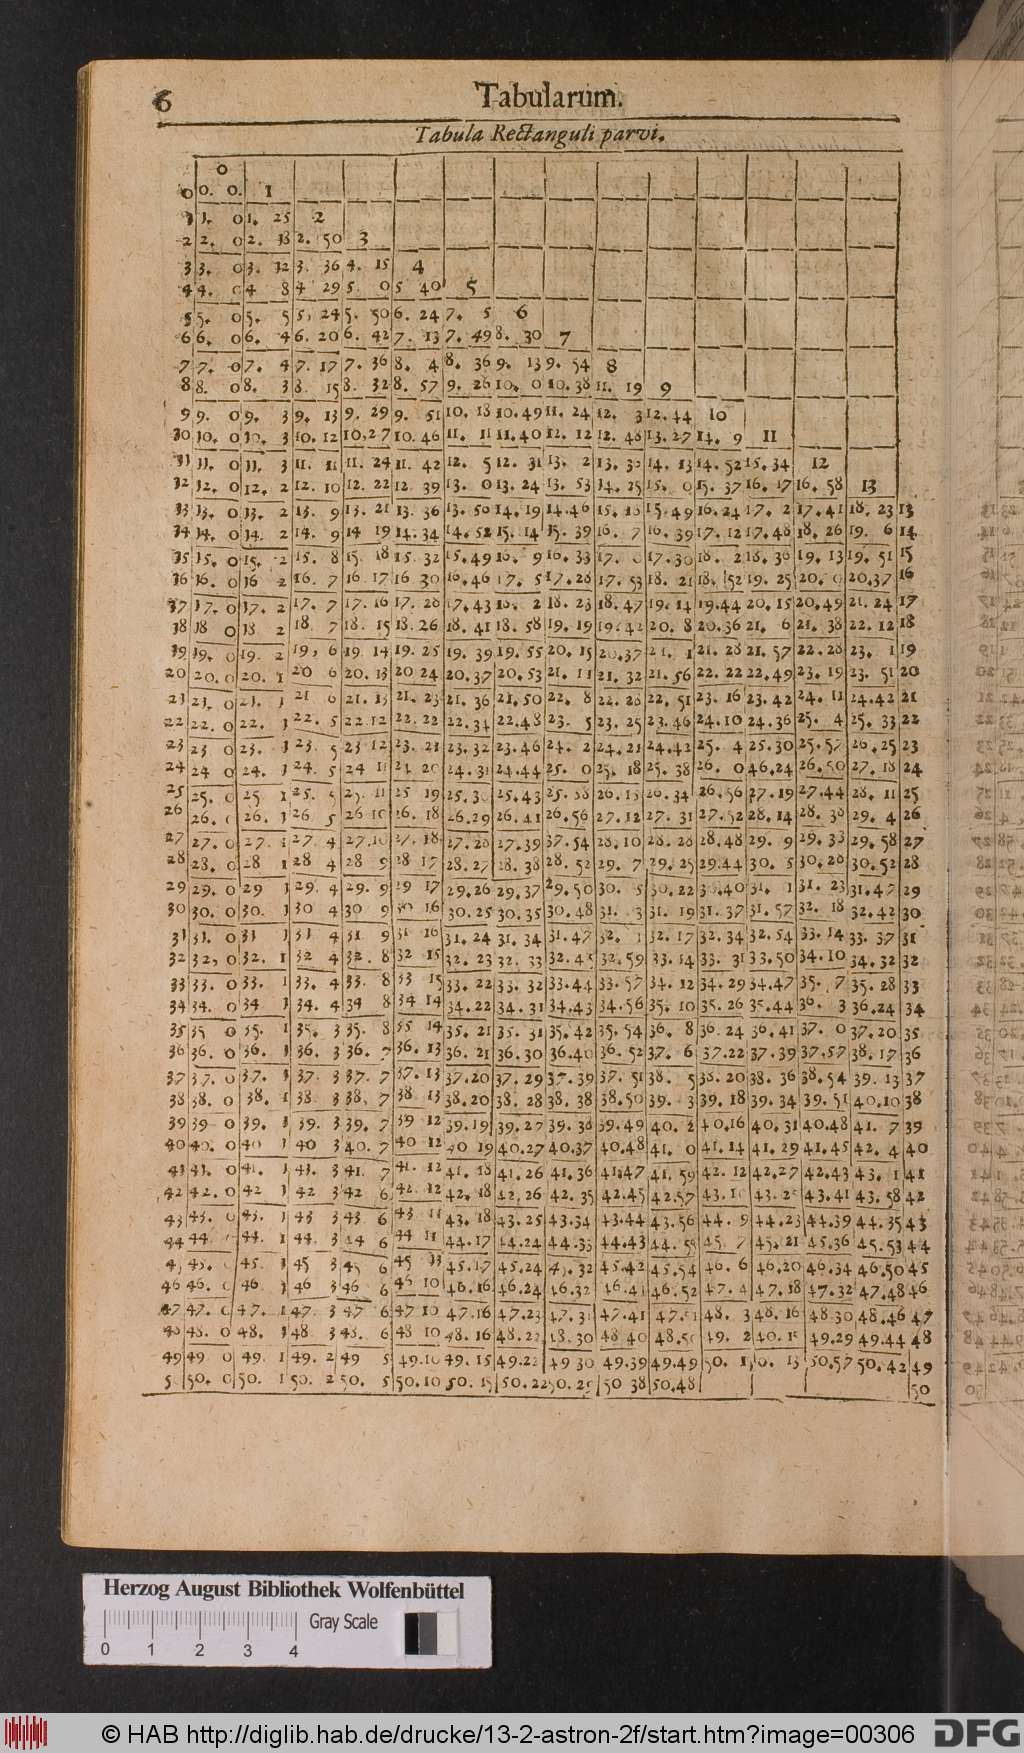 6
Tabularum.
Tabula Rectanguli parvi.
0
0 0. 0. 1
1. 0 1. 25 2
2 2. 0 2. 18 2. 50 3
3 3. 0 3. 12 3. 36 4. 15 4
4 4. 0 4 8 4 29 5. 0 5 40 5
5 5. 0 5. 5 5, 24 5. 50 6. 24 7. 5 6
6 6. 0 6. 4 6. 20 6. 42 7. 13 7. 49 8. 30 7
7 7. 0 7. 4 7. 17 7. 36 8. 4 8. 36 9. 13 9. 54 8
8 8. 0 8. 3 8. 15 8. 32 8. 57 9. 26 10. 0 10. 38 11. 19 9
9 9. 0 9. 3 9. 13 9. 29 9. 51 10. 18 10. 49 11. 24 12. 3 12. 44 10
10 10. 0 10. 3 10. 12 10,27 10. 46 11. 11 11. 40 12. 12 12. 48 13. 27 14. 9 11
11 11. 0 11. 3 11. 11 11. 24 11. 42 12. 5 12. 31 13. 2 13. 14. 13 14. 52 15. 34 12
12 12. 0 12. 2 12. 10 12. 22 12 39 13. 0 13. 24 13. 53 14. 25 15. 0 15. 37 16. 17 16. 58 13
13 13. 0 13. 2 13. 9 13. 21 13. 36 13. 50 14. 19 14. 46 15. 15. 49 16. 24 17. 2 17. 41 18. 23 13
14 14. 0 14. 2 14. 9 14 19 14. 34 14. 52 15. 14 15. 39 16. 7 16. 39 17. 12 17. 48 18. 26 19. 6 14
15 15. 0 15. 2 15. 8 15. 18 15. 32 15. 49 16. 9 16. 33 17. 17. 30 18. 2 18. 36 19. 13 19. 51 15
16 16. 0 16 2 16. 7 16. 17 16 30 16. 46 17. 5 17. 28 17. 53 18. 21 18. 52 19. 25 20. 0 20. 37 16
17 17. 0 17. 2 17. 7 17. 16 17. 28 17. 43 18. 2 18. 23 18. 47 19. 14 19. 44 20. 15 20. 49 21. 24 17
18 18 0 18 2 18 7 18. 15 18. 26 18. 41 18. 58 19. 19 19. 42 20. 8 20. 36 21. 6 21. 38 22. 12 18
19 19. 0 19. 2 19, 6 19. 14 19. 25 19. 39 19. 55 20. 15 20. 37 21. 1 21. 28 21. 57 22. 28 23. 1 19
20 20. 0 20. 1 20 6 20. 13 20 24 20. 37 20. 53 21. 11 21. 32 21. 56 22. 22 22. 49 23. 19 23. 51 20
21 21. 0 21. 1 21 6 21. 13 21. 23 21. 36 21. 50 22. 8 22. 28 22. 51 23. 16 23. 42 24. 11 24. 42 21
22 22. 0 22. 1 22. 5 22. 12 22. 22 22. 34 22. 48 23. 5 23. 25 23. 46 24. 10 24. 36 25. 4 25. 33 22
23 23 0 23. 1 23 5 23 12 23. 21 23. 32 23. 46 24. 2 24. 21 24. 42 25. 4 25. 30 25. 57 26. 25 23
24 24 0 24. 1 24. 5 24 11 24 20 24. 31 24. 44 25. 0 25. 18 25. 38 26. 0 46. 24 26. 50 27. 18 24
25 25. 0 25 1 25. 5 25. 11 25 19 25. 30 25. 43 25. 58 26. 15 26. 34 26. 56 27. 19 27. 44 28. 11 25
26 26. 26. 1 26 5 26 10 26. 18 26. 29 26. 41 26. 56 27. 12 27. 31 27. 52 28. 14 28. 38 29. 4 26
27 27. 0 27. 1 27. 4 27. 10 27. 18 27. 28 27. 39 37. 54 28. 10 28. 28 28. 48 29. 9 29. 33 29. 58 27
28 28. 0 28 1 28 4 28 9 28 17 28. 27 28. 38 28. 52 29. 7 29. 25 29. 44 30. 5 30. 28 30. 52 28
29 29. 0 29 1 29. 4 29. 9 29 17 29. 26 29. 37 29. 50 30. 5 30. 22 30. 40 31. 1 31. 23 31. 47 29
30 30. 0 30. 1 30 4 30 9 30 16 30. 25 30. 35 30. 48 31. 3 31. 19 31. 37 31. 57 32. 18 32. 42 30
31 31. 0 31 1 31 4 31 9 31 16 31. 24 31. 34 31. 47 32. 1 32. 17 32. 34 32. 54 33. 14 33. 37 31
32 32, 0 32. 1 32 4 32. 8 32 15 32. 23 32. 33 32. 45 32. 59 33. 14 33. 31 33. 50 34. 10 34. 32 32
33 33. 0 33. 1 33. 4 33. 8 33 15 33. 22 33. 32 33. 44 33. 57 34. 12 34. 29 34. 47 35. 7 35. 28 33
34 34. 0 34 1 34. 4 34 8 34 14 34. 22 34. 31 34. 43 34. 56 35. 10 35. 26 35. 44 36. 3 36. 24 34
35 35 0 35. 1 35. 3 35. 8 35 14 35. 21 35. 31 35. 42 35. 54 36. 8 36. 24 36. 41 37. 0 37. 20 35
36 36. 0 36. 1 36. 3 36. 7 36. 13 36. 21 36. 30 36. 40 36. 52 37. 6 37. 22 37. 39 37. 57 38. 17 36
37 37. 0 37. 1 37. 3 37. 7 37. 13 37. 20 37. 29 37. 39 37. 51 38. 5 38. 20 38. 36 38. 54 39. 13 37
38 38. 0 38. 1 38. 3 38, 7 38 13 38. 20 38. 28 38. 38 38. 50 39. 3 39. 18 39. 34 39. 51 40. 10 38
39 39 0 39. 1 39. 3 39. 7 39 12 39. 19 39. 27 39. 38 39. 49 40. 2 40. 16 40. 31 40. 48 41. 7 39
40 40. 0 40 1 40 3 40. 7 40 12 40 19 40. 27 40. 37 40. 48 41. 0 41. 14 41. 29 41. 45 42. 4 40
41 41. 0 41. 1 41. 3 41. 7 41. 12 41. 18 41. 26 41. 36 41. 47 41. 59 42. 12 42. 27 42. 43 43. 1 41
42 42. 0 42 1 42 3 42 6 42. 12 42. 18 42. 26 42. 35 42. 45 42. 57 43. 43. 43. 41 43. 58 42
43 43. 0 43. 1 43 3 43 6 43 11 43. 18 43. 25 43. 34 43. 44 43. 56 44. 9 44. 23 44. 39 44. 35 43
44 44. 44. 1 44. 3 44 6 44 11 44. 17 44. 24 44. 33 44. 43 44. 45. 7 45. 21 45. 36 45. 53 44
45. 45. 1 45 3 45 6 45 45. 17 45. 24 32 45. 42 45. 54 46. 6 46. 20 46. 34 46. 50 45
46 46. 46 1 46 3 46 6 46 10 46. 16 46. 24 46. 32 46. 41 46. 52 47. 4 47. 18 47. 32 47. 48 46
47 47. 0 47. 1 47 3 47 6 47 10 47. 16 47. 23 47. 31 47. 41 47. 48. 3 48. 16 48 30 48. 46 47
48 48. 0 48. 1 48 3 48. 6 48 10 48. 16 48. 22 48. 30 48 40 48. 49. 2 49. 29 49. 44 48
49 49 0 49. 1 49. 2 49 5 49. 10 49. 15 49. 22 49 30 49. 39 49. 49 50. 1 13 50. 57 50. 42 49
50. 0 50. 1 50. 2 50. 5 50. 10 50. 15 50. 22 50. 50 38 50. 48 50
Herzog August Bibliothek Wolfenbüttel
Gray Scale
0 1 2 3 4
© HAB http://diglib.hab.de/drucke/13-2-astron-2f/start.htm?image=00306
DFG